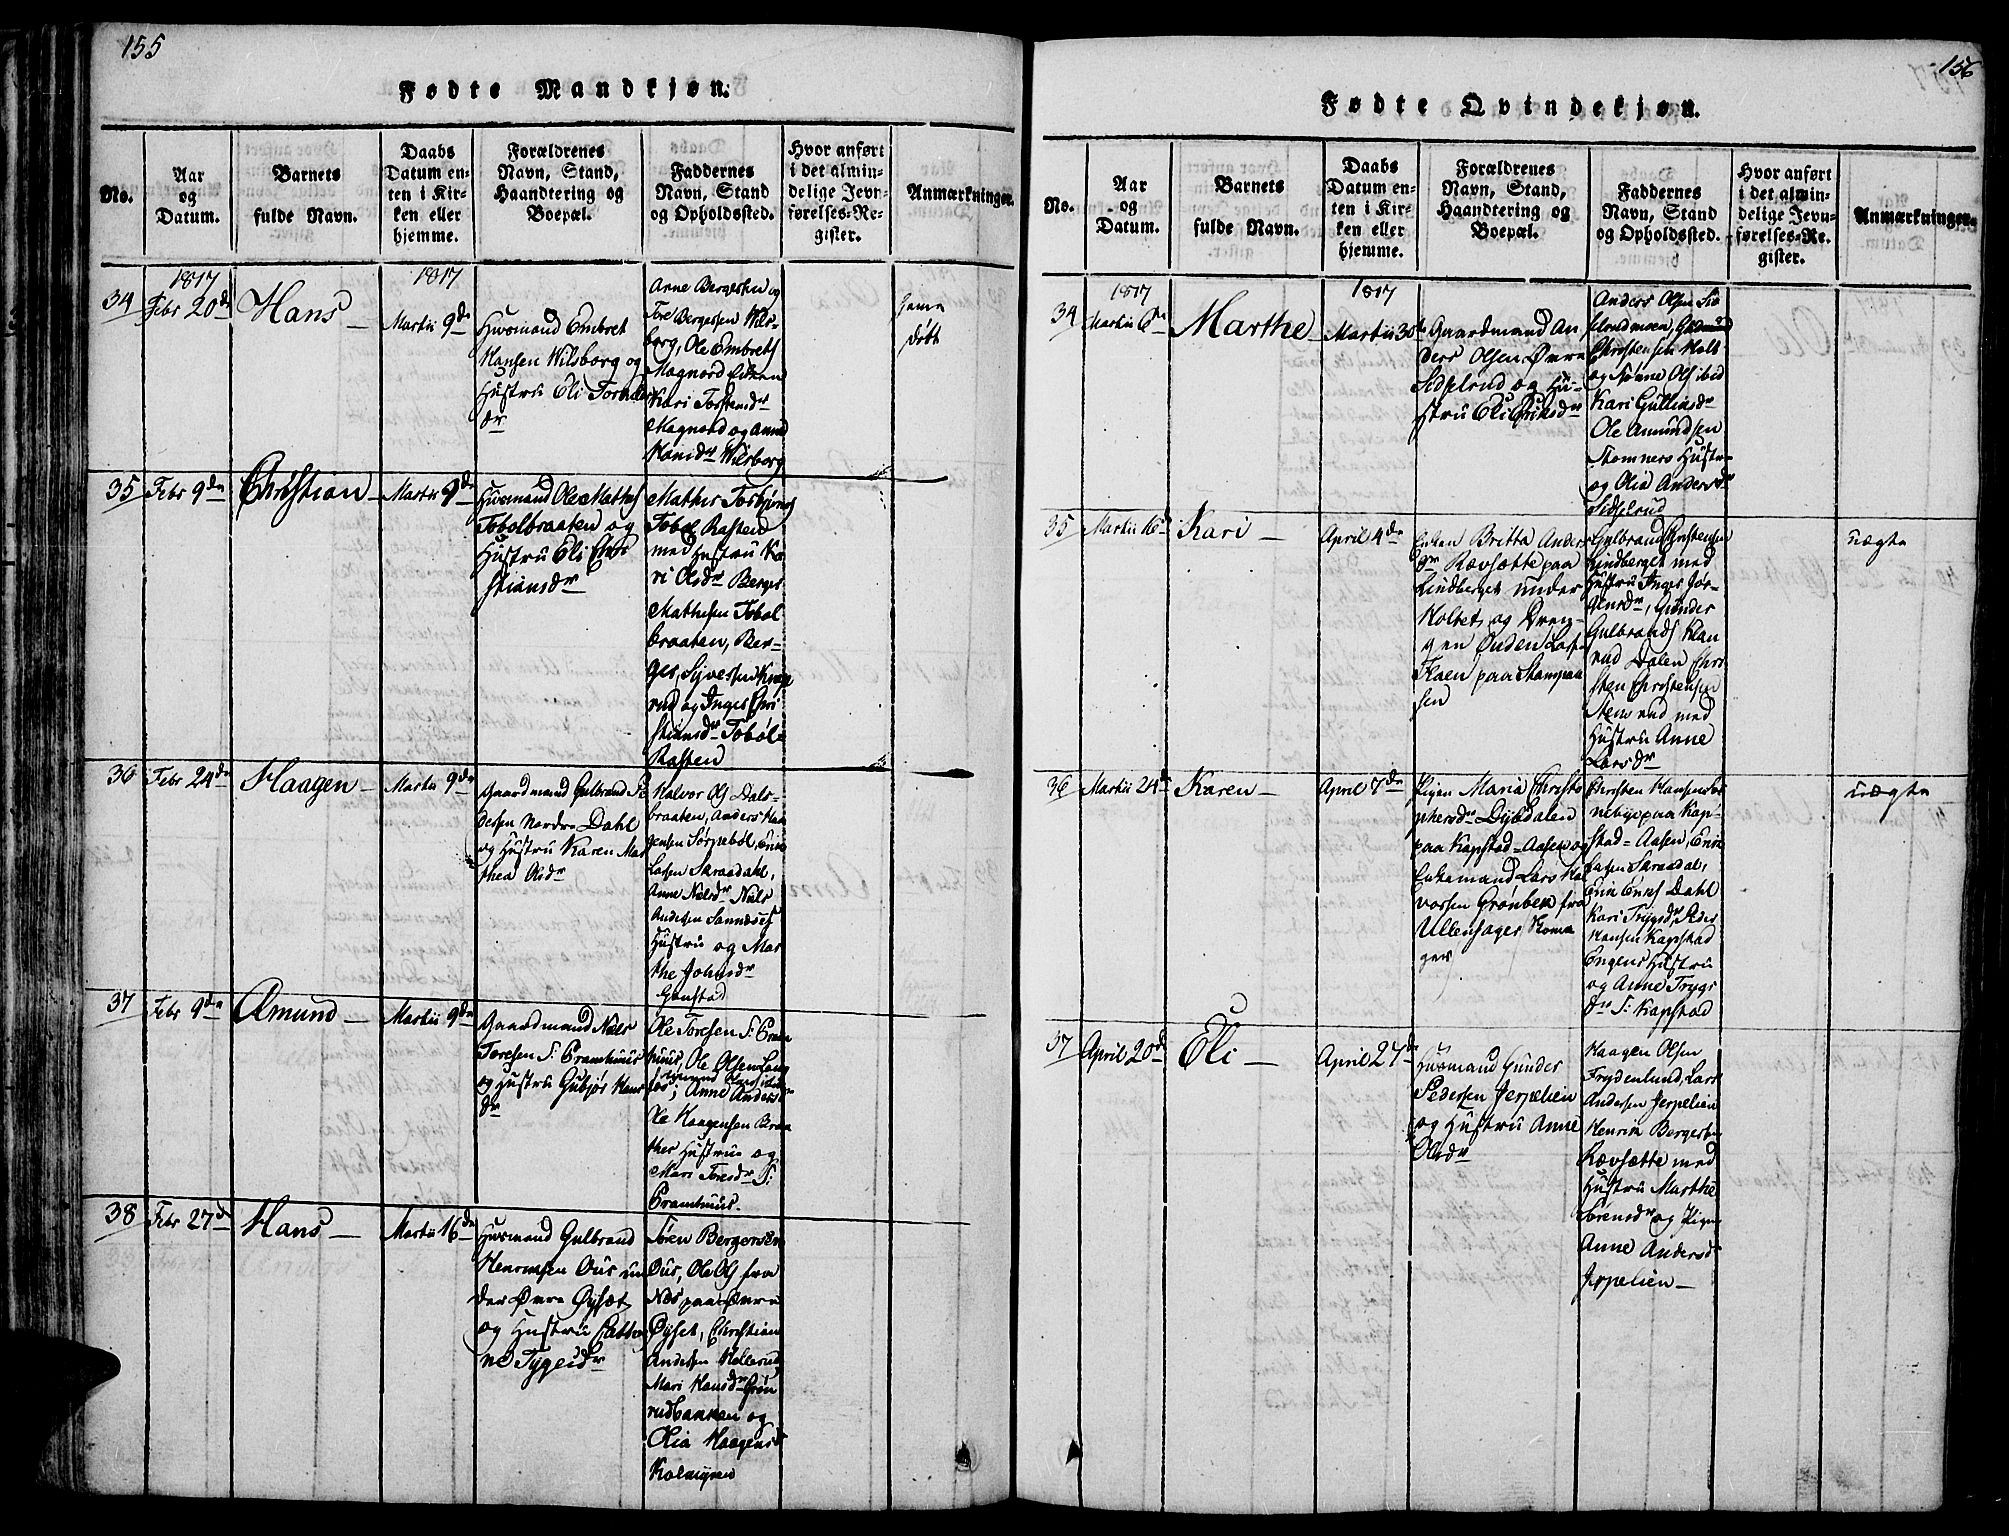 155
Fødte Mandkjøn.
No.
Aar
og
Datum.
Barnets
fulde Navn.
Daabs
Datum en-
ten i Kir-
ken eller
hjemme.
Forældrenes
Navn, Stand,
Haandtering og
Boepæl.
Faddernes
Navn, Stand
og Opholdssted.
Hvor anført
i det almin-
delige Jevn-
førelses-Re-
gister.
Anmærkninger.
34
1817
Febr 20de
Hans
1817
Martii 9de
Huusmand Embret
Hansen Wilsborg og
Hustru Eli
dr
Arne Bergesen og
Tore Bergesen Wils-
borg, Ole Embrets
Magnord
Kari Torstensdr
Magnord og Anne
Hansdr Wilsborg
hjemme
døbt
35
Febr 9de
Christian
Martii 9de
Huusmand Ole Mathes
Tobolbraaten og
Hustru Eli Chri
stiansdr
Mathes Torbjørns
Tobøl Kasten
med Hustru Ka
ri Olsdr Berges
Mathesen Tobøl
braaten, Ber-
ger Syversen
rud og Inger Chri
stiansdr Tobøl-
Kasten
36
Febr 24de
Haagen
Martii 9de
Gaardmand Gulbrand Pe
dersen Nordre Dahl
og Hustru Karen Mar
thea Olsdr
Halvor Ols Dals-
braaten, Anders Haa
gensen Sørpebøl,
Larsen Skraadahl,
Anne Nielsdr Niels
Andersen
Hustru og Mar
the Johnsdr
Gonstad
37
Febr 9de
Amund
Martii 9de
Gaardmand Niels
Toresen S: Bramhuus
og Hustru Gubjør Hans
dr
Ole Toresen S: Bram
huus, Ole Olsen Lang
Anne Anders
Ole Haagensen Braa
then Hustru og
Mari Toresdr S:
Bramhuus.
38
Febr 27de
Hans
Martii 16de
Huusmand Gulbrand
Henrensen Ous un
der Øvre Øysæt
og Hustru Catha
ne Tygesdr
Søren Bergersen
Ous, Ole Ols fra
Næs paa Øvre
Øyset, Christian
Andersen Hellerud
Mari Hansdr Grøn
rudbanken og
Olia Haagensd
Kolmyren
156
Fødte Qvindekjøn.
No.
Aar
og
Datum.
Barnets
fulde Navn.
Daabs
Datum en-
ten i Kir-
ken eller
hjemme.
Forældrenes
Navn, Stand,
Haandtering og
Boepæl.
Faddernes
Navn, Stand
og Opholdssted.
Hvor anført
i det almin-
delige Jevn-
førelses-Re-
gister.
Anmærkninger.
34
1817
Martii 6te
Marthe
1817
Martii 30te
Gaardmand An
ders Olsen Øvre
Sidselrud og Hu-
stru Eli Eriksdr
Anders Olsen Si
Christensen Holt
og Sønne Ols ibid
Kari Gulliksdr
Ole Amundsen
Stomners Hustru
og Olia Andersdr
Sidselrud
35
Martii 16de
Kari
April 4de
Enken Britta Anders
dr Rævsætte paa
Lindberget under
Holtet og Dren-
gen Enden Lars
Floen paa Stampaa
sen
Gulbrand Christensen
Lindberget med
Hustru Inger Jør-
gensdr, Gunder
Gulbrands Klan
rud Dalen Chri
sten Christensen
Stenrud med
Hustru Anne
Larsdr
uægte
36
Martii 24de
Karen
April 7de
Pigen Maria Christo
phersdr Dybdalen
paa Kapstad-Aasen og
Enkemand Lars Hal
vorsen Grønbek fra
Ullensager Roma
ger
Christen Hansen
nebye paa Kap-
stad-Aasen, Erik
Larsen Skraadal,
Erik Ericks Dahl
Kari Trygsdr Peder
Hansen Kapstad
Engens Hustru
og Anne Trygs
dr S: Kapstad
uægte
37
April 20de
Eli
April 27de
Huusmand Gunder
Pedersen Jerpelien
og Hustru Anne
Olsdr
Haagen Olsen
Frydenlund, Lars
Andersen Jerpelien
Henrik Bergersen
Rævsætte med
Hustru Marthe
Sørensdr og Pigen
Anne Andersd
Jerpelien